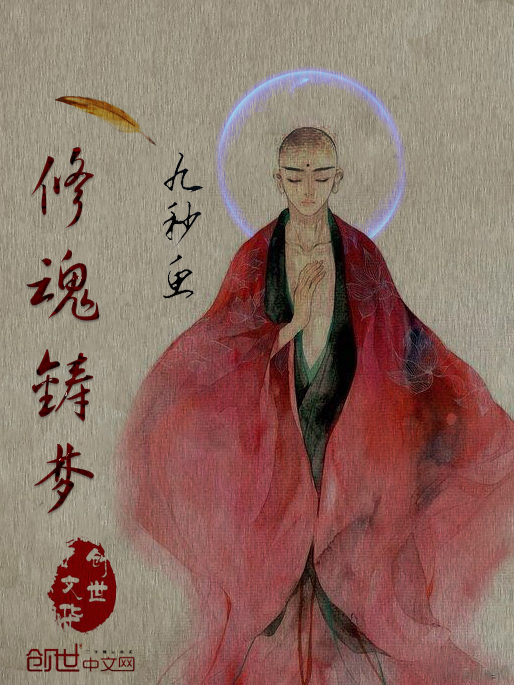 修魂鑄梦
九秒鱼
创世
文华
创世中文网